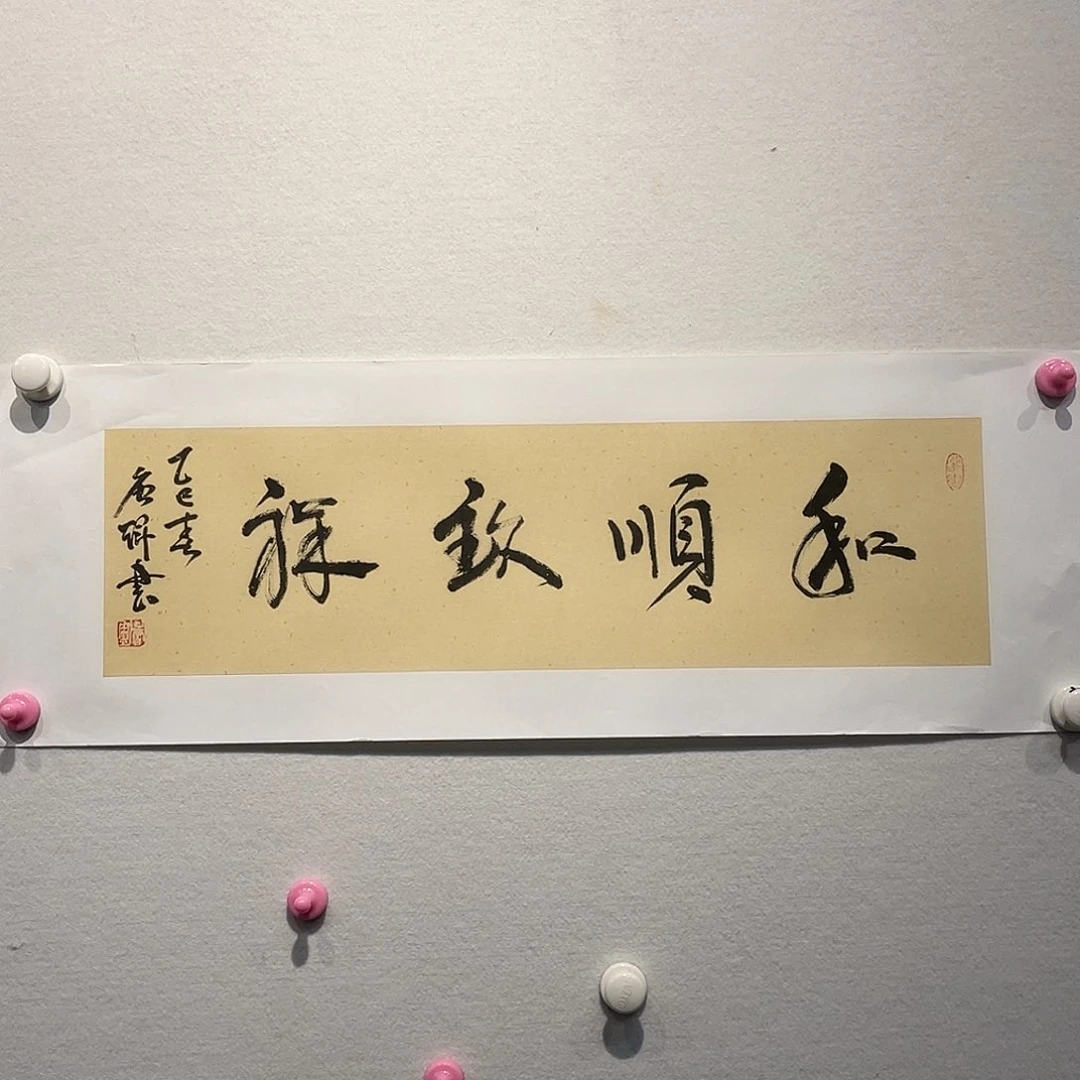 和順致祥
乙巳春
書